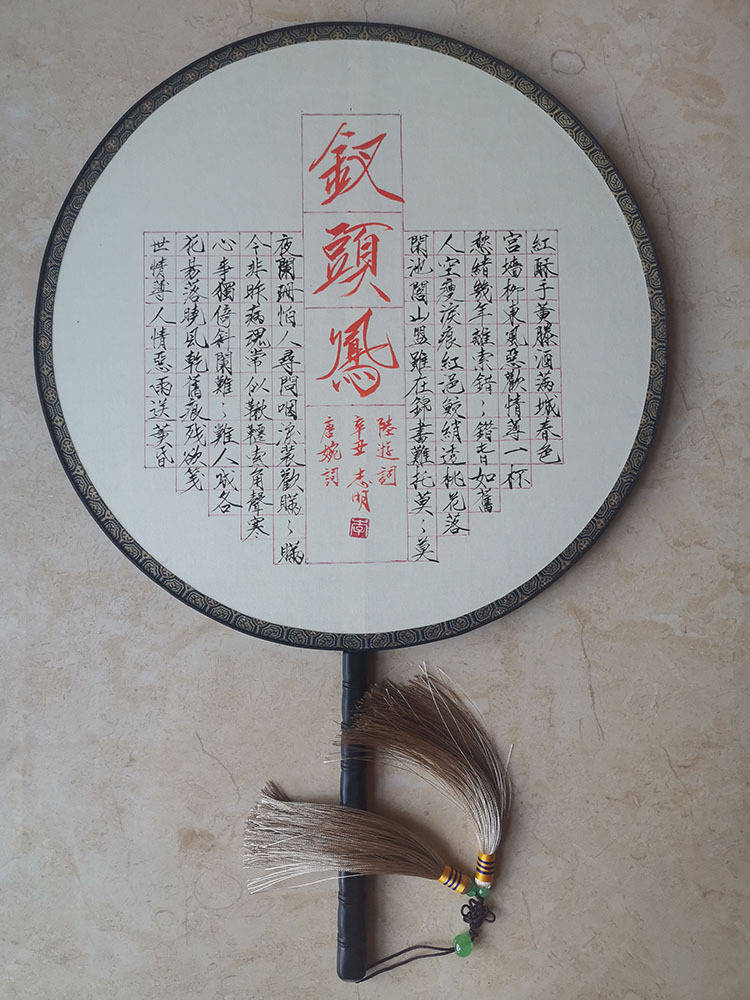 釵頭鳳
紅酥手黄滕酒满城春色
宫墙柳東風惡歡情薄一杯
愁緒幾年離索錯〻錯春如舊
人空瘦淚痕紅浥鲛綃透桃花落
閑池閣山盟雖在錦書難托莫〻莫
陸游詞
辛丑 志明
李
唐婉詞
世情薄人情惡雨送黄昏
花易落曉風乾舊痕残欲笺
心事獨倚斜闌難〻難人成各
今非昨病魂常似鞦韆索角聲寒
夜闌珊怕人尋問咽淚裝歡瞞〻瞞